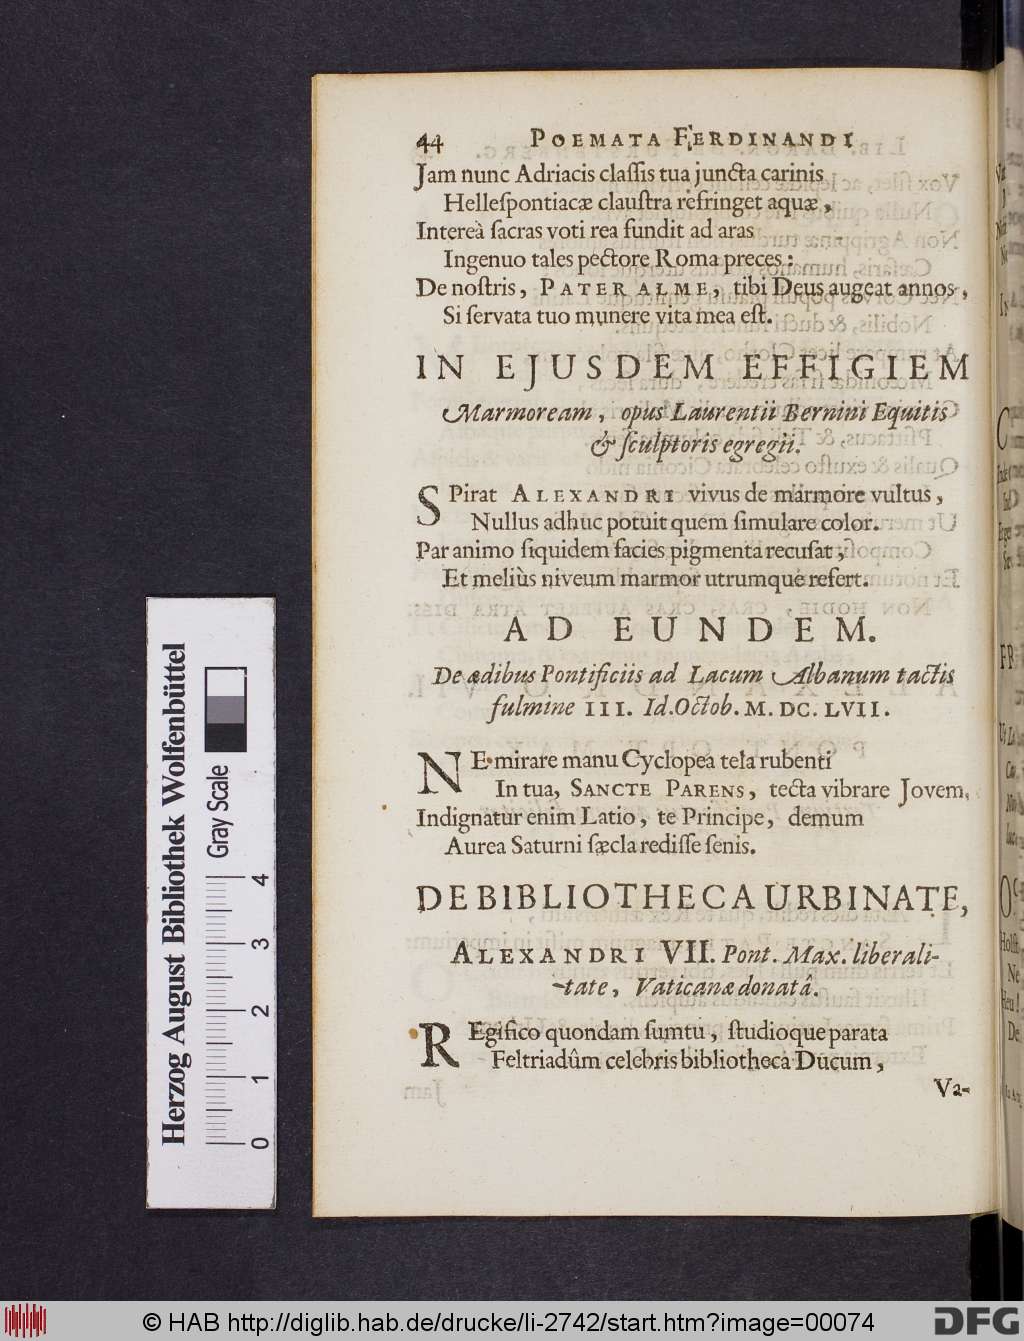 44 POEMATA FERDINANDI
Jam nunc Adriacis claſſis tua juncta carinis
Helleſpontiacæ clauſtra refringet aquæ,
Intereà ſacras voti rea fundit ad aras
Ingenuo tales pectore Roma preces:
De noſtris, PATER ALME, tibi Deus augeat annos,
Si ſervata tuo munere vita mea eſt.
IN EJUSDEM EFFIGIEM
Marmoream, opus Laurentii Bernini Equitis
& ſculptoris egregii.
SPirat ALEXANDRI vivus de marmore vultus,
Nullus adhuc potuit quem ſimulare color.
Par animo ſiquidem facies pigmenta recuſat;
Et meliùs niveum marmor utrumque refert.
AD EUNDEM.
De ædibus Pontificiis ad Lacum Albanum tactis
fulmine III. Id. Octob. M. DC. LVII.
NE mirare manu Cyclopea tela rubenti
In tua, SANCTE PARENS, tecta vibrare Jovem,
Indignatur enim Latio, te Principe, demum
Aurea Saturni ſæcla rediſſe ſenis.
DE BIBLIOTHECA URBINATE,
ALEXANDRI VII. Pont. Max. liberali-
tate, Vaticanæ donatâ.
REgifico quondam ſumtu, ſtudioque parata
Feltriadûm celebris bibliotheca Ducum,
Va-
Herzog August Bibliothek Wolfenbüttel
Gray Scale
0 1 2 3 4
© HAB http://diglib.hab.de/drucke/li-2742/start.htm?image=00074
DFG